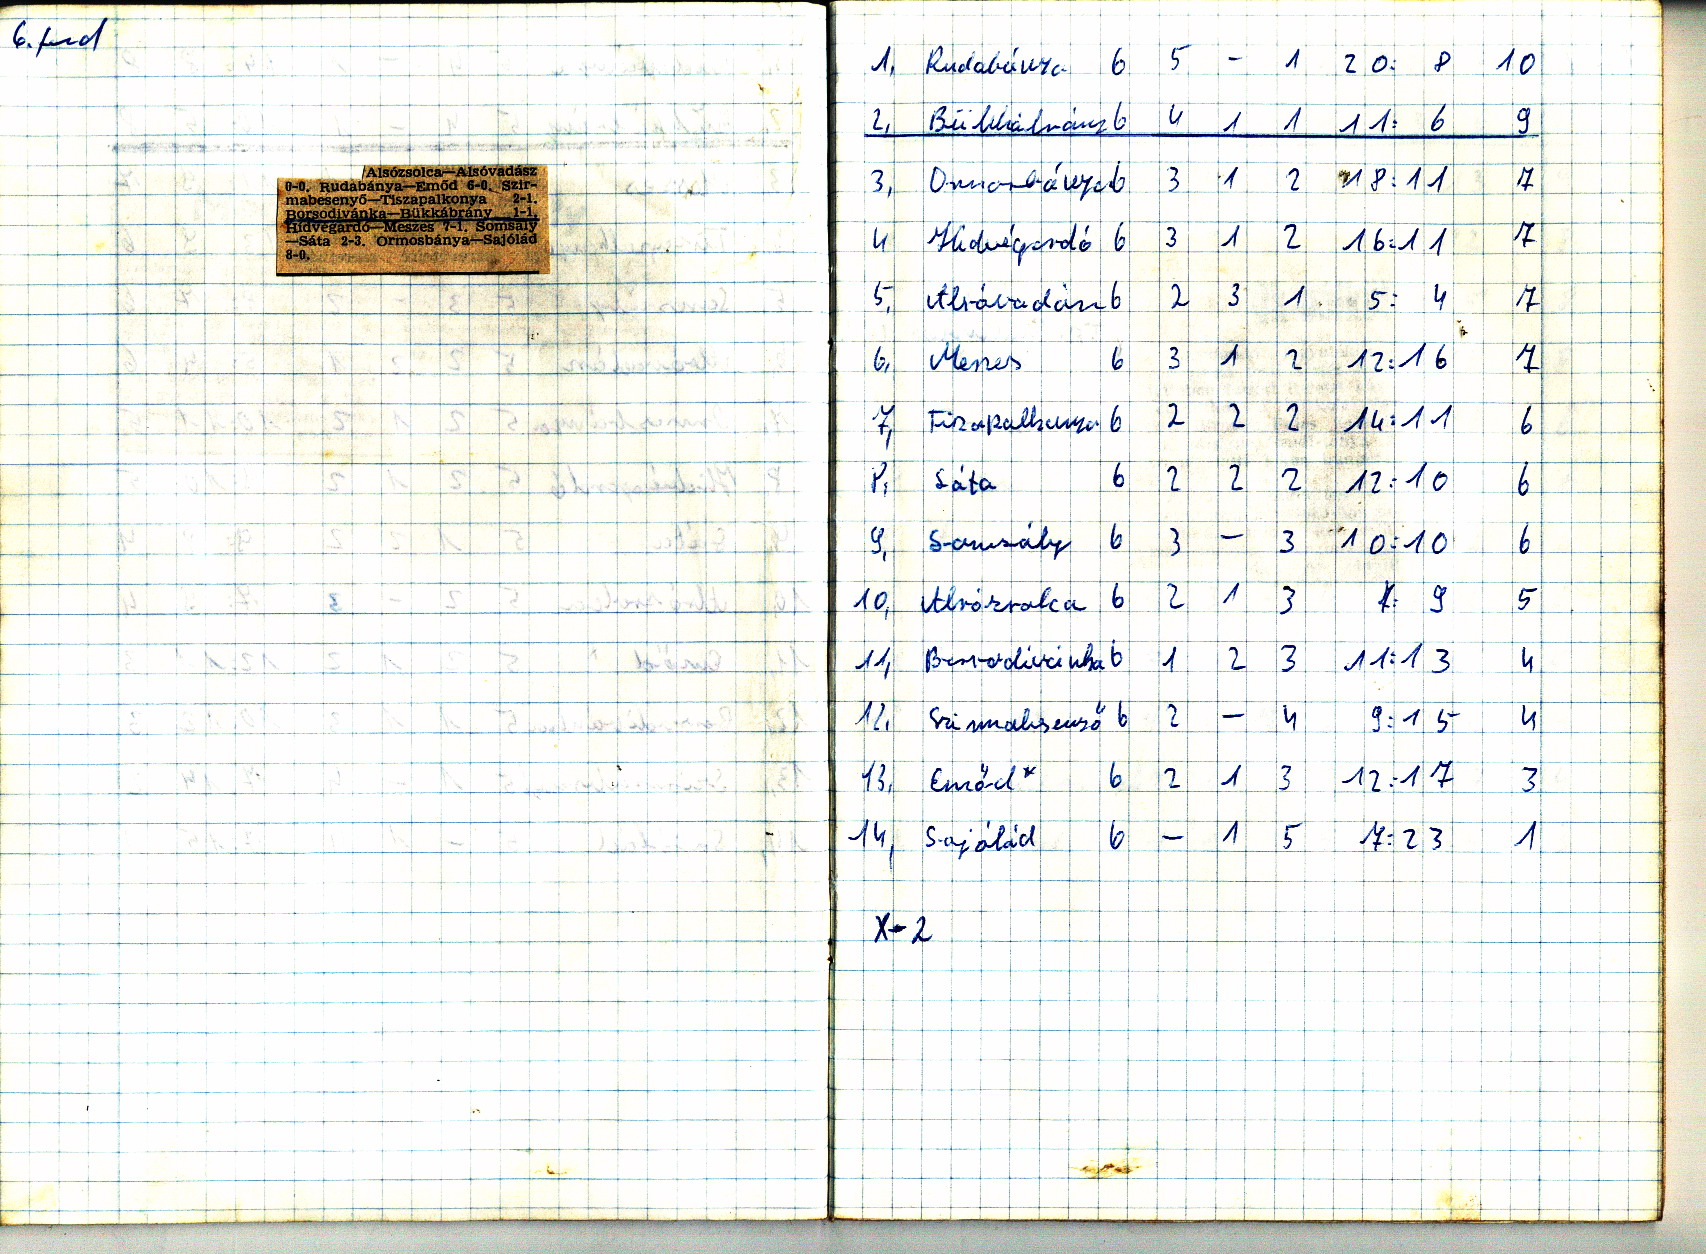 6. ford
Alsózsolca—Alsóvadász
0-0. Rudabánya—Emőd 6-0. Szir-
mabesenyő—Tiszapalkonya 2-1.
Borsodivánka—Bükkábrány 1-1.
Hidvégardó—Meszes 7-1. Somsály
—Sáta 2-3. Ormosbánya—Sajólád
8-0.
1, Rudabánya 6 5 - 1 20: 8 10
2, Bükkábrány 6 4 1 1 11: 6 9
3, Ormosbánya 6 3 1 2 18:11 7
4 Hidvégardó 6 3 1 2 16:11 7
5, Alsóvadász 6 2 3 1 5: 4 7
6, Meszes 6 3 1 2 12:16 7
7, Tiszapalkonya 6 2 2 2 14:11 6
8, Sáta 6 2 2 2 12:10 6
9, Somsály 6 3 - 3 10:10 6
10, Alsózsolca 6 2 1 3 7: 9 5
11, Borsodivánka 6 1 2 3 11:13 4
12, Szirmabesenyő 6 2 - 4 9:15 4
13, Emőd* 6 2 1 3 12:17 3
14, Sajólád 6 - 1 5 7:23 1
X-2